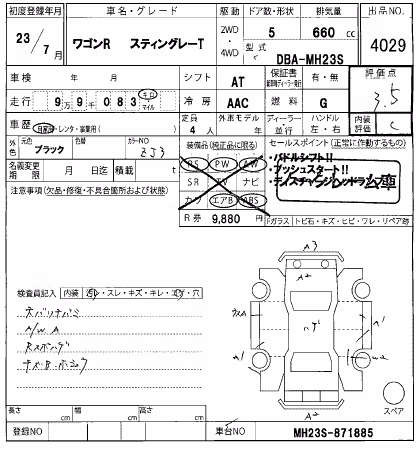 初度登録年月 車名・グレード 駆動 ドア数・形状 排気量 出品NO.
23/7月 ワゴンR スティングレーT 2WD・4WD 5 660 cc 4029
型式 DBA-MH23S
車検 年 月 シフト AT 保証書 有・無 評価点
走行 9万9千083 キロ マイル 冷房 AAC 燃料 G 3.5
車歴 自家用・レンタ・事業用( ) 定員 4人 外車モデル 年 ディーラー・並行 ハンドル 左・右 内装評価 C
外色 元色 ブラック 色替 カラーNO ZJ3 装備品(純正品に限る) セールスポイント(正常に作動するもの)
名義変更期限 月 日迄 積載 t PS PW AW ・パドルシフト!!
注意事項(欠品・修復・不具合箇所および状態) SR TV ナビ ・プッシュスタート!!
カワ エアB ABS ・ディスチャージヘッドランプ
R券 9,880 円 Fガラス トビ石・キズ・ヒビ・ワレ・リペア跡
A3
A2
検査員記入 内装 ・スレ・キズ・キレ・コゲ・穴
A/W A
ハゲ
A1
W2
A2
スペア
長さ cm 幅 cm 高さ cm
登録NO 車台NO MH23S-871885